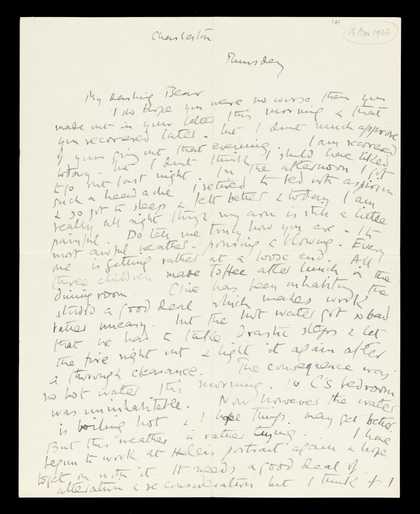 Charleston
Thursday
My darling Bear
I do hope you were no worse than you
made out in your letter this morning & that
you recovered later. But I don't much approve
of your going out that evening. I am recovered
today. But I don't think I should have liked
to go out last night. In the afternoon I got
such a headache I retired to bed with aspirin
& so got to sleep & felt better & today I am
really all right though my arm is still a little
painful. Do tell me truly how you are. It's
most awful weather - pouring & blowing. Every
one is getting rather at a loose end. All
three children made toffee after lunch in the
dining room. Clive has been inhabiting the
studio a good deal which makes work
rather uneasy. But the hot water got so bad
that we had to take drastic steps & let
the fire right out & light it again after
a thorough clearance. The consequence was
no hot water this morning. So C's bedroom
was uninhabitable. Now however the water
is boiling hot & I hope things may get better
But this weather is rather trying. I have
begun to work at Helen's portrait again & hope
to get on with it. It needs a good deal of
alteration & reconsideration but I think if I